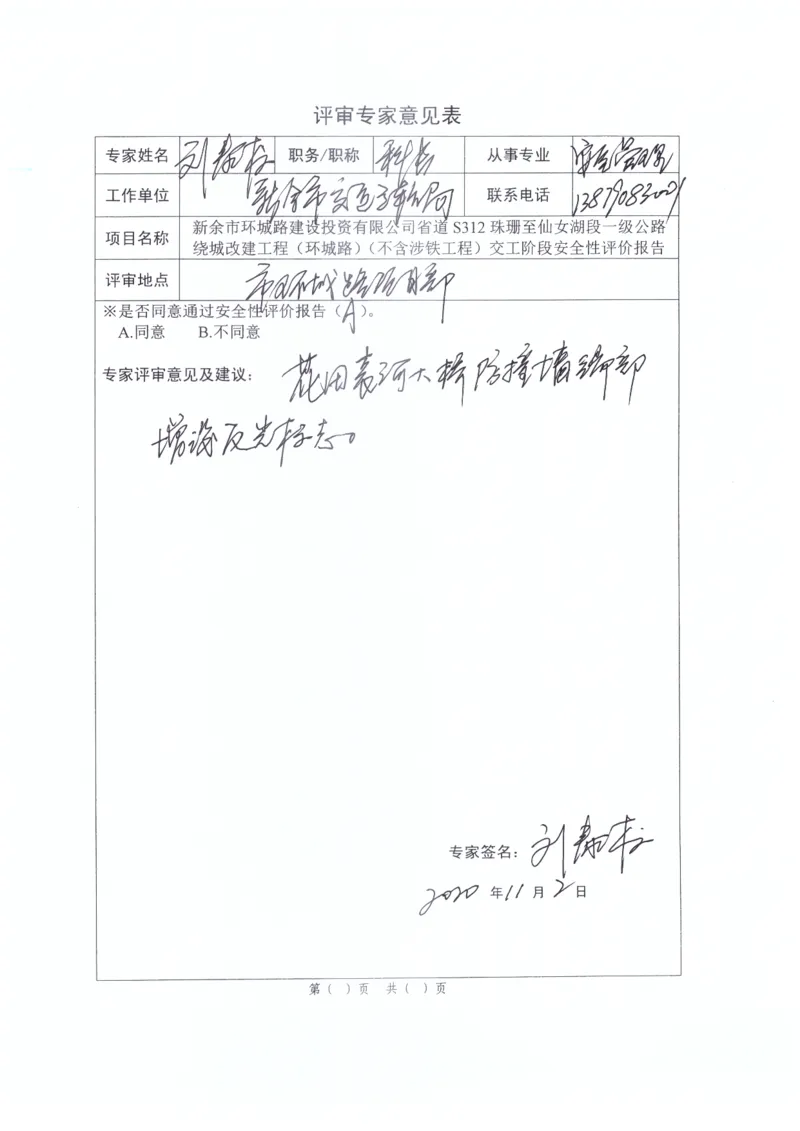 评审专家意见表
专家姓名 刘 职务/职称 科长 从事专业 安全管理
工作单位 新余市交通运输局 联系电话
项目名称 新余市环城路建设投资有限公司省道 S312 珠珊至仙女湖段一级公路
绕城改建工程（环城路）（不含涉铁工程）交工阶段安全性评价报告
评审地点 市环城路项目部
※是否同意通过安全性评价报告（A）。
A.同意 B.不同意
专家评审意见及建议： 花田袁河大桥防撞墙端部
增设反光标志。
专家签名： 刘
2020 年 11 月 2 日
第（ ）页 共（ ）页